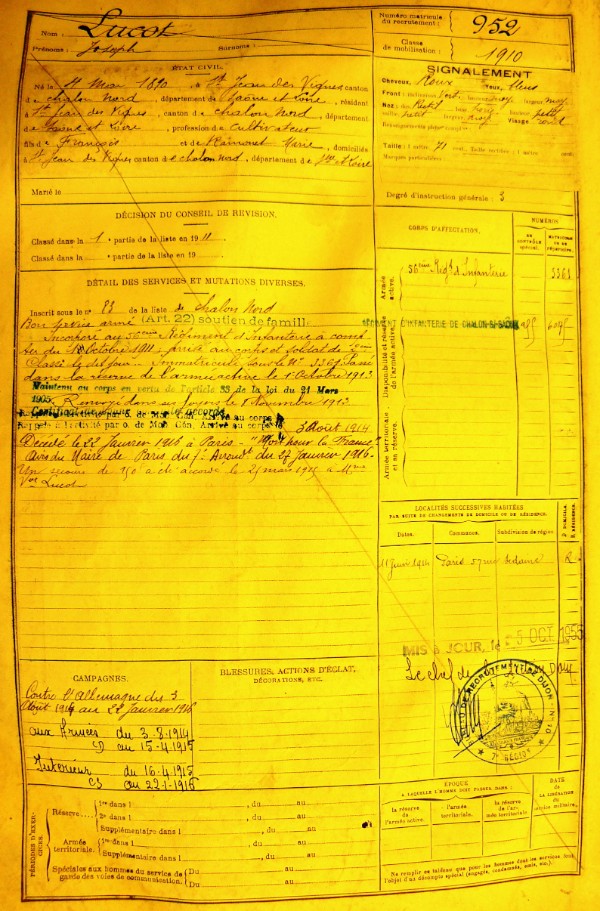 Nom : Lucot
Prénoms : Joseph Surnoms :
Numéro matricule du recrutement : 952
Classe de mobilisation : 1910
ÉTAT CIVIL.
Né le 11 Mai 1890, à St Jean des Vignes, canton
d e chalon Nord, département de Saône et Loire, résident
à St Jean des Vignes, canton de chalon Nord, département
de Saone et Loire, profession de Cultivateur
fils de François et de Raimonet Marie, domiciliés
à St Jean des Vignes canton de chalon Nord, département de Sne et Loire
Marié le
SIGNALEMENT
Cheveux, Roux Yeux, bleus
Front :
Nez : dos Rectil
Visage rond
Renseignements physionomiques complémentaires :
Taille : 1 mètre 71 cent. Taille rectifiée : 1 mètre cent.
Marques particulières.
Degré d'instruction générale : 3
DÉCISION DU CONSEIL DE REVISION.
Classé dans la 1e partie de la liste en 1911
Classé dans la partie de la liste en
DÉTAIL DES SERVICES ET MUTATIONS DIVERSES.
Inscrit sous le n° 83 de la liste de Chalon Nord
Bon service armé (Art. 22) soutien de famill
Incorporé au 56eme Régiment d'Infanterie à comp
ter du Octobre 1911 arrivé au corps et soldat de 2eme
Classe le dit jour Immatriculé sous le N° 5361 Passé
dans la réserve de l'armée active le 1er Octobre 1913
Maintenu au corps en vertu de l'article 33 de la loi du 21 Mars
1905. Renvoyé dans ses foyers le 8 Novembre 1913
Certificat de bonne accordé
Rappelé à l'activité par o. de Mob. Gén. Arrivé au corps le 3 Août 1914
Décédé le 22 Janvier 1916 à Paris - "Mort pour la France"
Avis du Maire de Paris du 7e Arrondt du 27 Janvier 1916-
Un secours de 150 a été accordé le 25 mars 1915 à Mme
Vve Lucot
CORPS D'AFFECTATION.
NUMÉROS
DU CONTRÔLE SPÉCIAL.
MATRICULE OU DE RÉPERTOIRE.
Armée active.
56eme Régt d'Infanterie 5361
Disponibilité et réserve de l'armée active.
RÉGIMENT D'INFANTERIE DE CHALON-S/-SAÔNE
Armée territoriale et sa réserve.
LOCALITÉS SUCCESSIVES HABITÉES
PAR SUITE DE CHANGEMENTS DE DOMICILE OU DE RÉSIDENCE.
Dates. Communes. Subdivision de région. D. DOMICILE R. RÉSIDENCE
Paris 57 rue Sedaine R
MIS à JOUR, le 5 OCT 1955
Le chef de
RECRUTEMENT DE DIJON
7e RÉGION
CAMPAGNES.
Contre l'Allemagne du 3
Août 1914 au 22 Janvier 1916
aux Armées du 3-8-1914
CD au 15-4-1915
Intérieur du 16-4-1915
au 22-1-1916
BLESSURES, ACTIONS D'ÉCLAT,
DÉCORATIONS, ETC.
PÉRIODES D'EXERCICES.
Réserve
1re dans l , du au
2e dans l , du au
Supplémentaire dans l , du au
Armée territoriale.
1re dans l , du au
Supplémentaire dans l , du au
Spéciales aux hommes du service de garde des voies de communication.
Du au
Du au
ÉPOQUE
À LAQUELLE L'HOMME DOIT PASSER DANS :
la réserve de l'armée active.
l'armée territoriale.
la réserve de l'armée territoriale.
DATE
DE LA LIBÉRATION
du service militaire.
Ne remplir ce tableau que pour les hommes dont les services font
l'objet d'un décompte spécial (engagés, condamnés, omis, etc.)